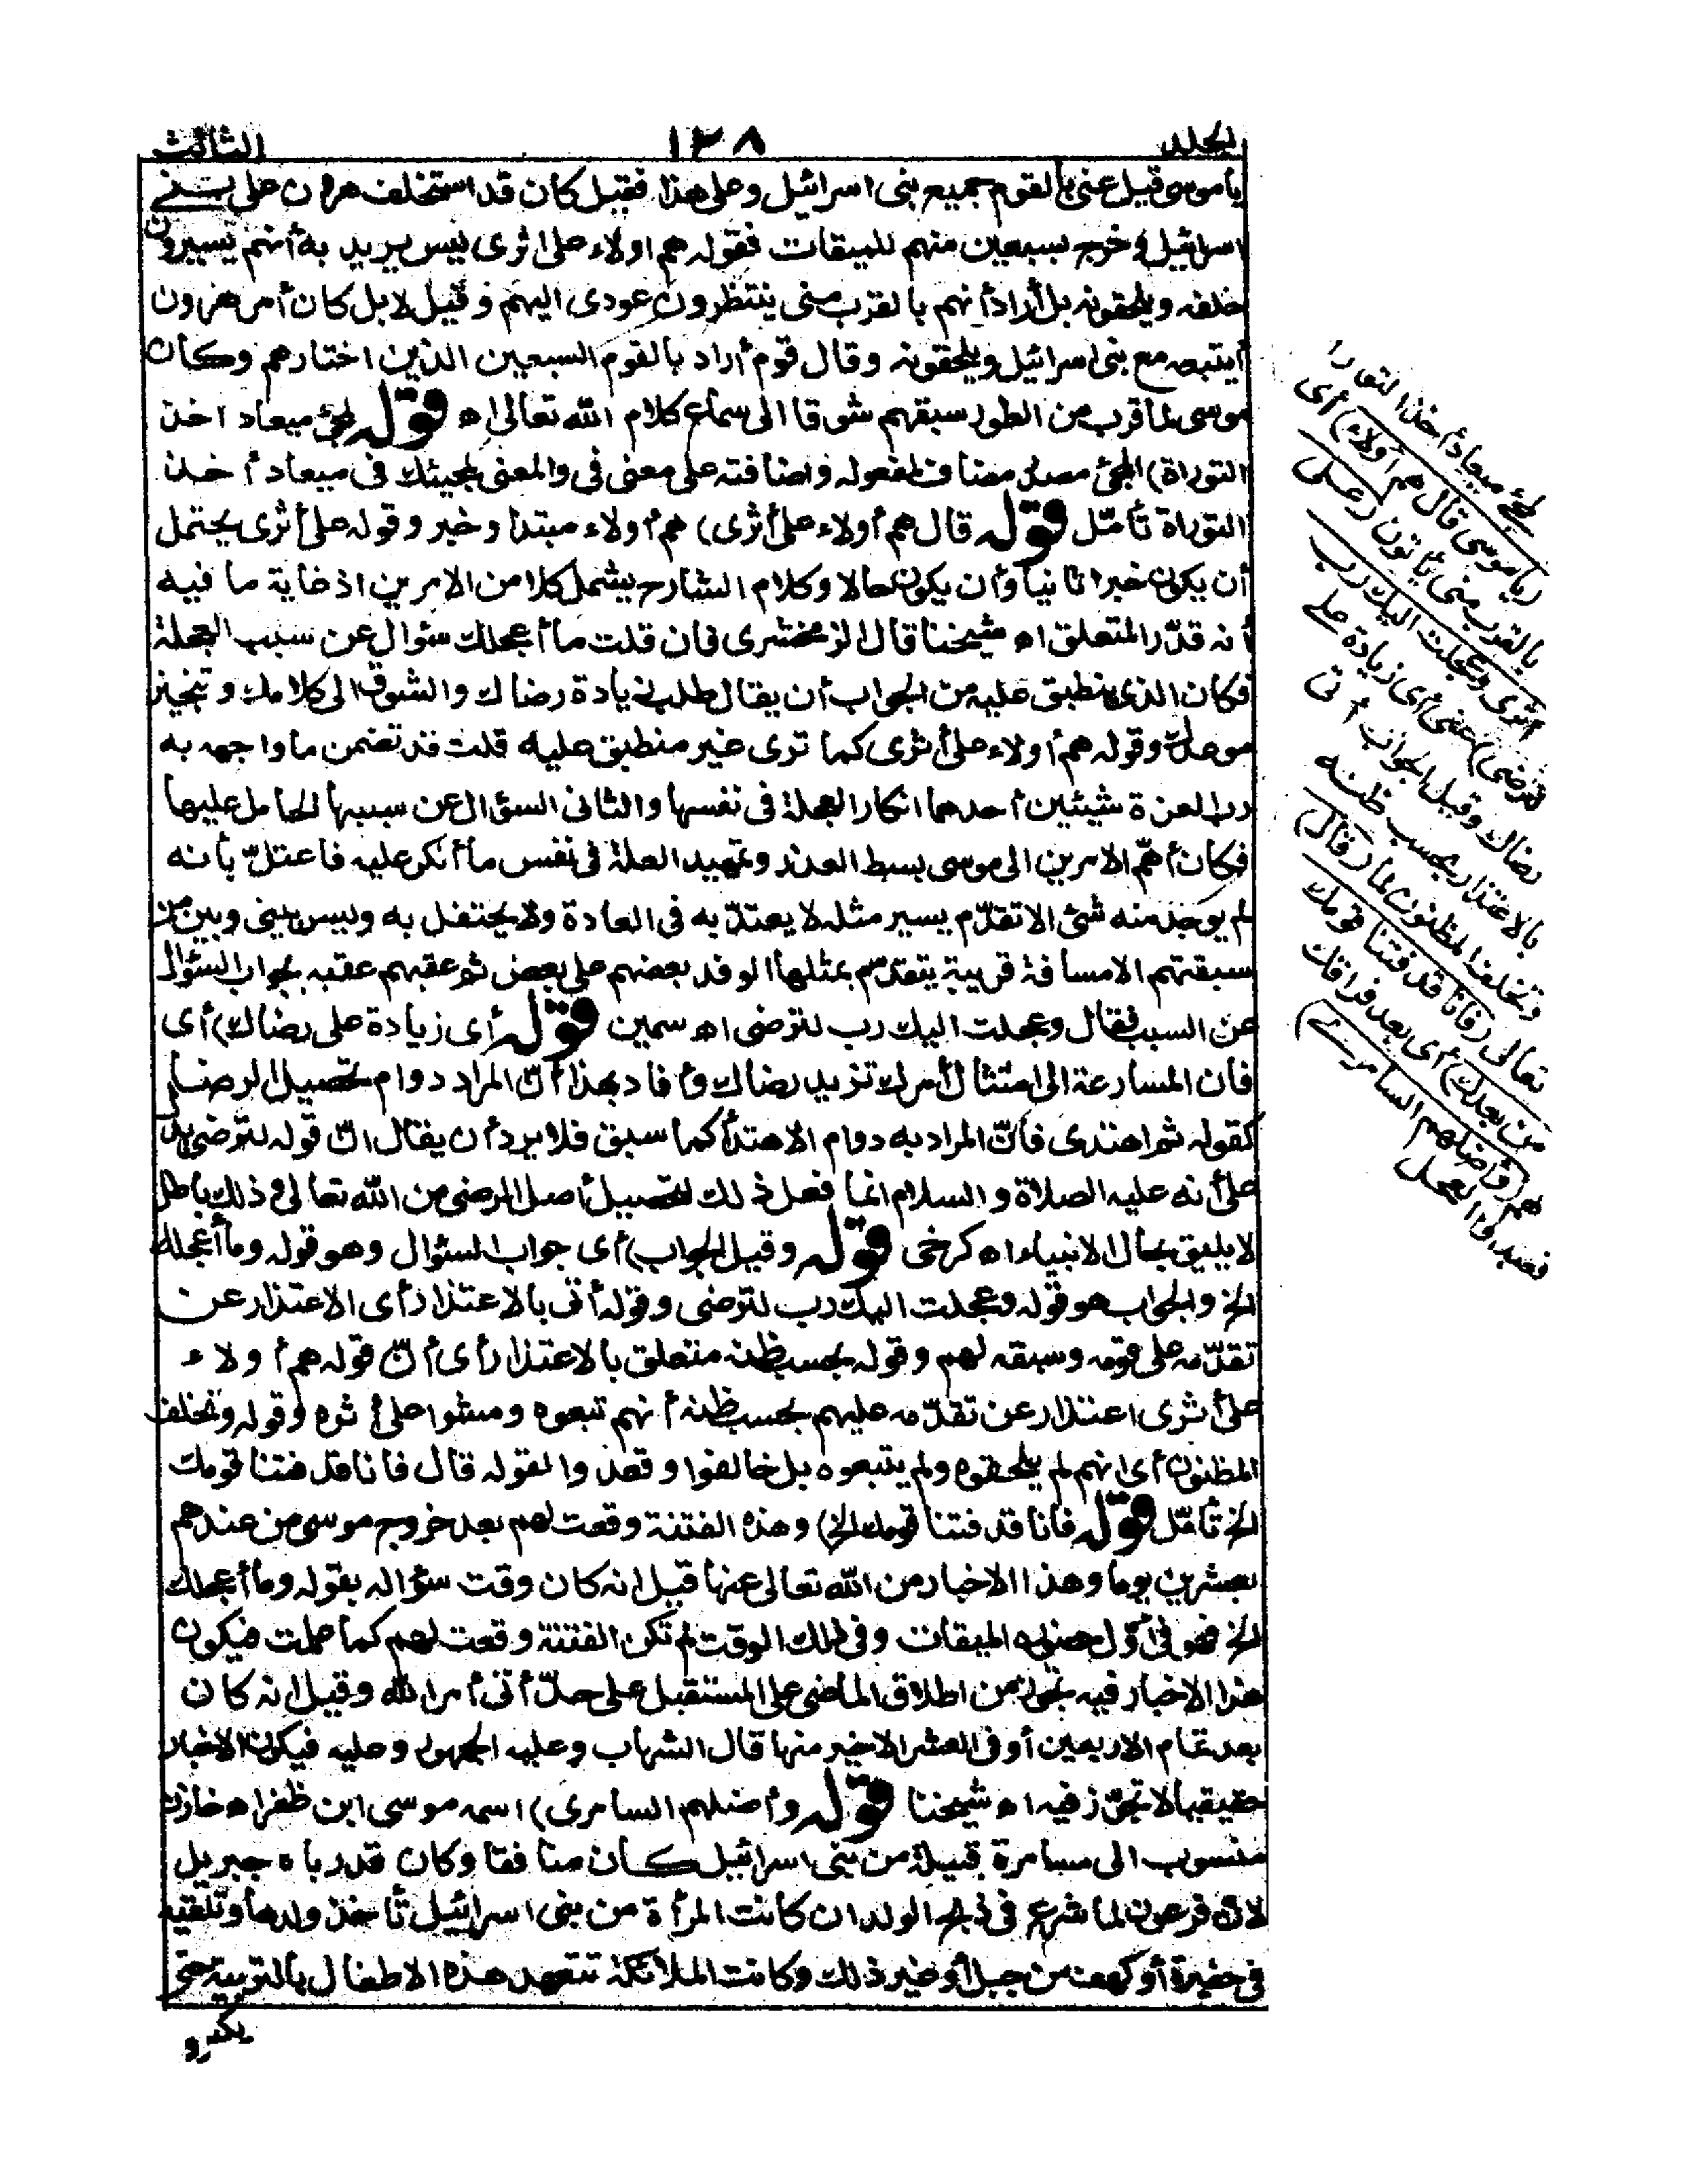 المجلد ١٣٨ الثالث
يا موسى قيل عنى بالقوم جميع بنى اسرائيل وعلى هذا فقيل كان قد استخلف هرون على بنى
اسرائيل وخرج بسبعين منهم للميقات فقوله هم اولاء على اثرى ليس يريد به أنهم يسيرون
خلفه ويلحقونه بل أراد أنهم بالقرب منى ينتظرون عودى اليهم وقيل لا بل كان أمر هرون
أن يتبعه مع بنى اسرائيل ويلحقونه وقال قوم أراد بالقوم السبعين الذين اختارهم وكان
موسى لما قرب من الطور سبقهم شوقا الى سماع كلام الله تعالى اه قوله لمجئ ميعاد اخذ
التوراة) المجئ مصدر مضاف لمفعوله واضافته على معنى فى والمعنى لمجيئك فى ميعاد أخذ
التوراة تأمّل قوله قال هم أولاء على أثرى) هم أولاء مبتدأ وخبر وقوله على أثرى يحتمل
أن يكون خبرا ثانيا وأن يكون حالا وكلام الشارح يشمل كلا من الامرين اذ غاية ما فيه
أنه قدّر المتعلق اه شيخنا قال الزمخشرى فان قلت ما أعجلك سئوال عن سبب العجلة
فكان الذى ينطبق عليه من الجواب أن يقال طلب زيادة رضاك والشوق الى كلامك وتنجيز
موعدك وقوله هم أولاء على أثرى كما ترى غير منطبق عليه قلت قد تضمن ما واجهه به
رب العزة شيئين أحدهما انكار العجلة فى نفسها والثانى السؤال عن سببها الحامل عليها
فكان أهمّ الامرين الى موسى بسط العذر وتمهيد العلة فى نفس ما أنكر عليه فاعتلّ بأنه
لم يوجد منه شئ الا تقدّم يسير مثله لا يعتدّ به فى العادة ولا يحتفل به وليس بينى وبين من
سبقتهم الا مسافة قريبة يتقدّم بمثلها الوفد بعضهم على بعض ثم عقبهم عقبه بجواب السؤال
عن السبب فقال وعجلت اليك رب لترضى اه سمين قوله أى زيادة على رضاك) أى
فان المسارعة الى امتثال أمرك تزيد رضاك وأفاد بهذا أنّ المراد دوام تحصيل الرضا
كقوله ثم اهتدى فانّ المراد به دوام الاهتدأ كما سبق فلا يرد أن يقال انّ قوله لترضى يدل
على أنه عليه الصلاة والسلام انما فعل ذلك لتحصيل أصل الرضى من الله تعالى وذلك باطل
لا يليق بحال الانبياء اه كرخى قوله وقيل الجواب) أى جواب السئوال وهو قوله وما أعجلك
الخ والجواب هو قوله وعجلت اليك رب لترضى وقوله أتى بالاعتذار أى الاعتذار عن
تقدّمه على قومه وسبقه لهم وقوله بحسب ظنه متعلق بالاعتذار أى أنّ قوله هم أولاء
على أثرى اعتذار عن تقدّمه عليهم بحسب ظنه أنهم تبعوه ومشوا على أثره وقوله وتخلف
المظنون أى انهم لم يلحقوه ولم يتبعوه بل خالفوا وقعدوا لقوله قال فانا قد فتنا قومك
الخ تأمّل قوله فانا قد فتنا قومك الخ) وهذه الفتنة وقعت لهم بعد خروج موسى من عندهم
بعشرين يوما وهذا الاخبار من الله تعالى عنها قيل انه كان وقت سؤاله بقوله وما أعجلك
الخ فهو فى أوّل حضوره الميقات وفى ذلك الوقت لم تكن الفتنة وقعت لهم كما علمت فيكون
هذا الاخبار فيه تجوّز من اطلاق الماضى على المستقبل على حدّ أتى أمر الله وقيل انه كان
بعد تمام الاربعين أو فى العشر الاخير منها قال الشهاب وعليه الجمهور وعليه فيكون الاخبار
حقيقيا لا تجوّز فيه اه شيخنا قوله وأضلهم السامرى) اسمه موسى ابن ظفر اه خازن
منسوب الى سامرة قبيلة من بنى اسرائيل كان منافقا وكان قد رباه جبريل
لانّ فرعون لما شرع فى ذبح الولدان كانت المرأة من بنى اسرائيل تأخذ ولدها وتلقيه
فى حفيرة أو كهف من جبل أو غير ذلك وكانت الملائكة تتعهد هذه الاطفال بالتربية حتى
يكبروا
لمجئ ميعاد أخذ التورا
(يا موسى قال هم أولاء) أى
بالقرب منى يأتون (على
أثرى وعجلت اليك رب
لترضى) عنى أى زيادة على
رضاك وقيل الجواب أتى
بالاعتذار بحسب ظنه
وتخلف المظنون لما (قال)
تعالى (فانا قد فتنا قومك
من بعدك) أى بعد فراقك
لهم (وأضلهم السامرى)
فعبدوا العجل